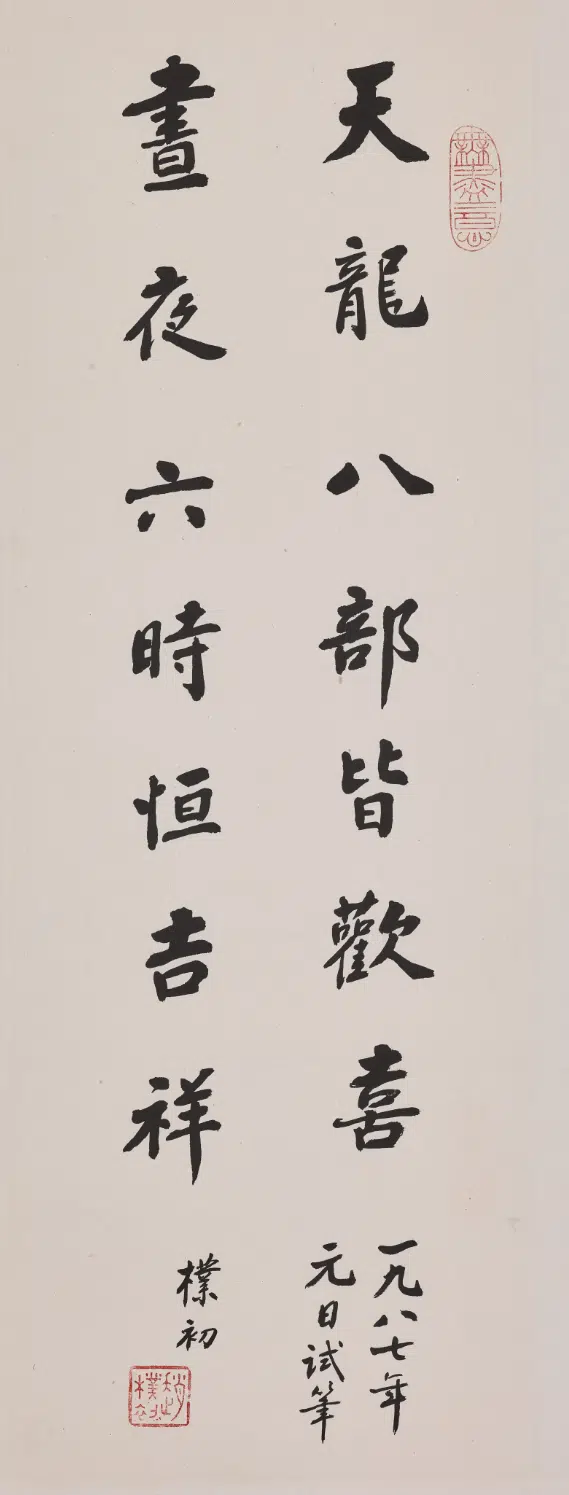 天龍八部皆歡喜
一九八七年
元日試筆
晝夜六時恒吉祥
樸初
趙樸初